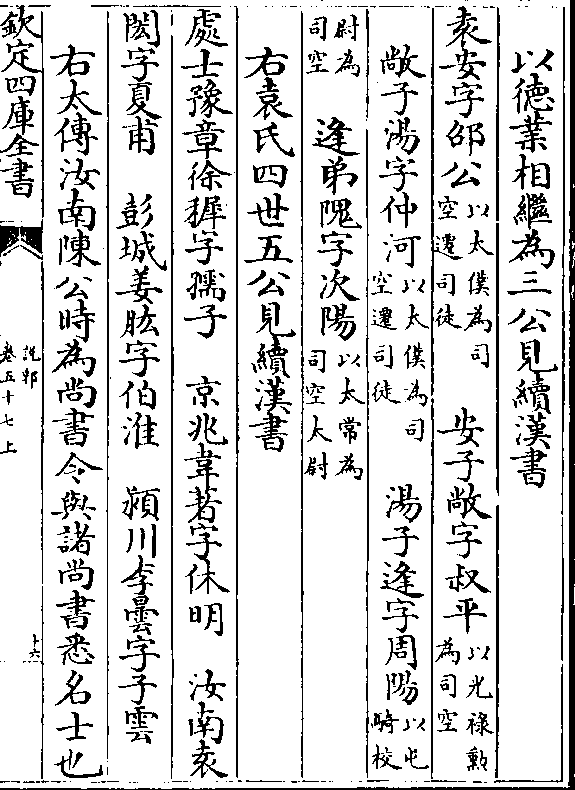 以德業相繼為三公見續漢書
袁安字邵公以太僕為司空遷司徒　安子敞字叔平以光祿勲為司空
敞子湯字仲河以太僕為司空遷司徒　湯子逢字周陽以屯騎校
尉為司空　逢弟隗字次陽以太常為司空太尉
右袁氏四世五公見續漢書
處士豫章徐穉字孺子　京兆韋著字休明　汝南袁
閎字夏甫　彭城姜肱字伯淮　潁川李曇字子雲
右太傅汝南陳公時為尚書令與諸尚書悉名士也
欽定四庫全書　説郛卷五十七上　十六